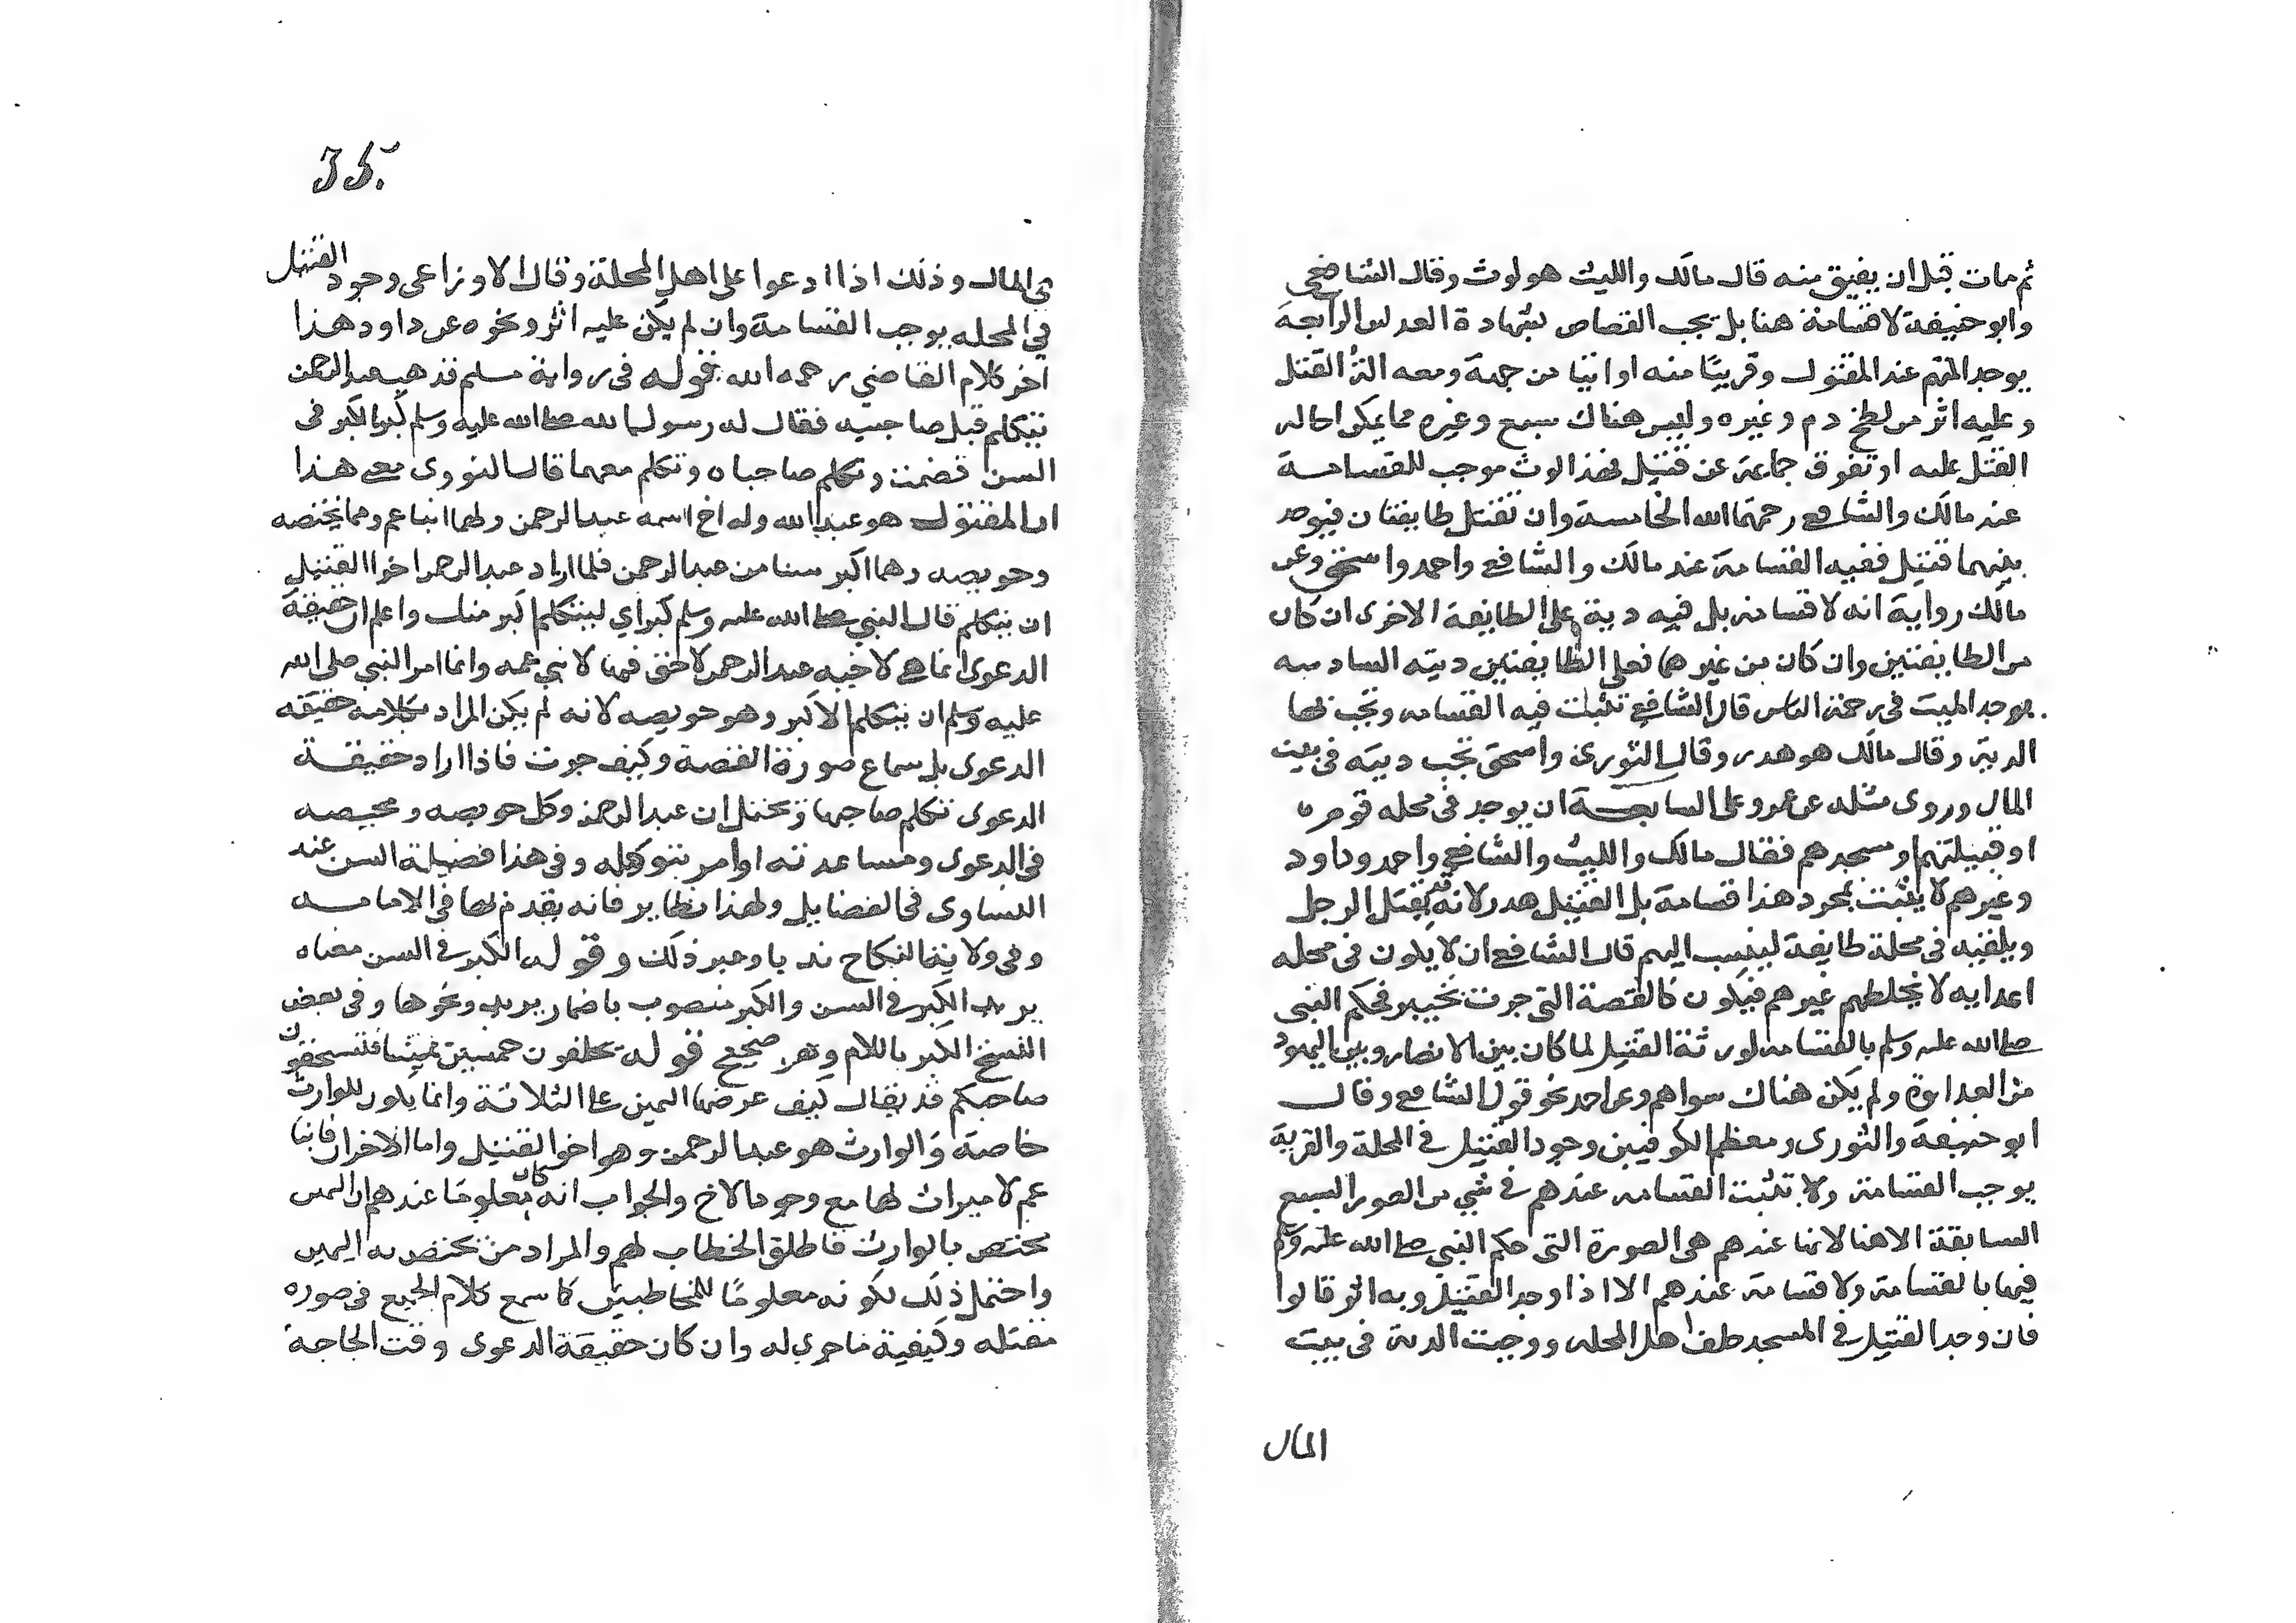 ثم مات قبل ان يفيق منه قال مالك والليث هو لوث وقال الشافعي
وابو حنيفة لا قسامة هنا بل يجب القصاص بشهادة العدلين الرابعة
يوجد المتهم عند المقتول وقريبًا منه او اتيا من جهة ومعه الة القتل
وعليه اثر من لطخ دم وغيره وليس هناك سبع وغيره مما يمكن احاله
القتل عليه او تفرق جماعة عن قتيل فهذا لوث موجب للقسامة
عند مالك والشافعي رحمهما الله الخامسة وان تقتتل طايفتان فيوجد
بينهما قتيل ففيه القسامة عند مالك والشافعي واحمد واسحق وعن
مالك رواية انه لا قسامة بل فيه دية على الطايفة الاخرى ان كان
من الطايفتين وان كان من غيرهما فعلى الطايفتين ديته السادسه
يوجد الميت في زحمة الناس قال الشافعي تثبت فيه القسامه وتجب بها
الدية وقال مالك هو هدر وقال الثوري واسحق تجب ديته في بيت
المال وروى مثله عن عمر وعلى السابعـــة ان يوجد في محله قوم
او قبيلتهم او مسجدهم فقال مالك والليث والشافعي واحمد وداود
وغيرهم لا يثبت بمجرد هذا قسامة بل القتيل هدر لانه قد يقتل الرجل
ويلقيه في محلة طايفة لينسب اليهم قال الشافعي ان لا يكون في محله
اعدايه لا يخلطهم غيرهم فيكون كالقصة التي جرت بخيبر فحكم النبي
صلى الله عليه وسلم بالقسامه لورثة القتيل لما كان بين الانصار وبين اليهود
من العداوة ولم يكن هناك سواهم وعن احمد نحو قول الشافعي وقال
ابو حنيفة والثوري ومعظم الكوفيين وجود القتيل في المحلة والقرية
يوجب القسامة ولا تثبت القسامه عندهم في شي من الصور السبع
السابقة الا هنا لانها عندهم هي الصورة التي حكم النبي صلى الله عليه وسلم
فيها بالقسامة ولا قسامة عندهم الا اذا وجد القتيل وبه اثر قالوا
فان وجد القتيل في المسجد حلف اهل المحله ووجبت الدية في بيت
المال
35
في المال وذلك اذا ادعوا على اهل المحلة وقال الاوزاعي وجود القتيل
في المحله يوجب القسامة وان لم يكن عليه اثر ونحوه عن داود هذا
اخر كلام القاضي رحمه الله قوله في رواية مسلم فذهب عبد الرحمن
يتكلم قبل صاحبيه فقال له رسول الله صلى الله عليه وسلم كبر الكبر في
السن فصمت وتكلم صاحباه وتكلم معهما قال النووي معنى هذا
ان المقتول هو عبد الله وله اخ اسمه عبد الرحمن ولهما ابنا عم وهما محيصه
وحويصه وهما اكبر سنا من عبد الرحمن فلما اراد عبد الرحمن اخوا القتيل
ان يتكلم قال النبي صلى الله عليه وسلم كبر اي ليتكلم اكبر منك واعلم ان حقيقة
الدعوى انما هي لاخيه عبد الرحمن لا حق فيها لابني عمه وانما امر النبي صلى الله
عليه وسلم ان يتكلم الاكبر وهو حويصه لانه لم يكن المراد بكلامه حقيقه
الدعوى بل سماع صورة القصة وكيف جرت فاذا اراد حقيقـــة
الدعوى تكلم صاحبها ويحتمل ان عبد الرحمن وكل حويصه ومحيصه
في الدعوى ومساعدته او امر بتوكيله وفي هذا فضيلة السن عند
التساوى في الفضايل ولهذا نظاير فانه يقدم بها في الامامـــه
وفي ولاية النكاح ندبا وغير ذلك وقوله الكبر في السن معناه
يريد الكبر في السن والكبر منصوب باضمار يريد ونحوها وفي بعض
النسخ الكبر باللام وهو صحيح قوله يحلفون خمسين يمينًا فتستحقون
صاحبكم قد يقال كيف عرضها اليمين على الثلاثة وانما يكون للوارث
خاصة والوارث هو عبد الرحمن وهو اخوا القتيل واما الاخران فابنا
عم لا ميراث لهما مع وجود الاخ والجواب انه كان معلومًا عندهم ان اليمين
تختص بالوارث فاطلق الخطاب لهم والمراد من تختص به اليمين
واحتمل ذلك لكونه معلومًا للمخاطبين كما سمع كلام الجميع في صوره
مقتله وكيفية ما جرى له وان كان حقيقة الدعوى وقت الحاجة